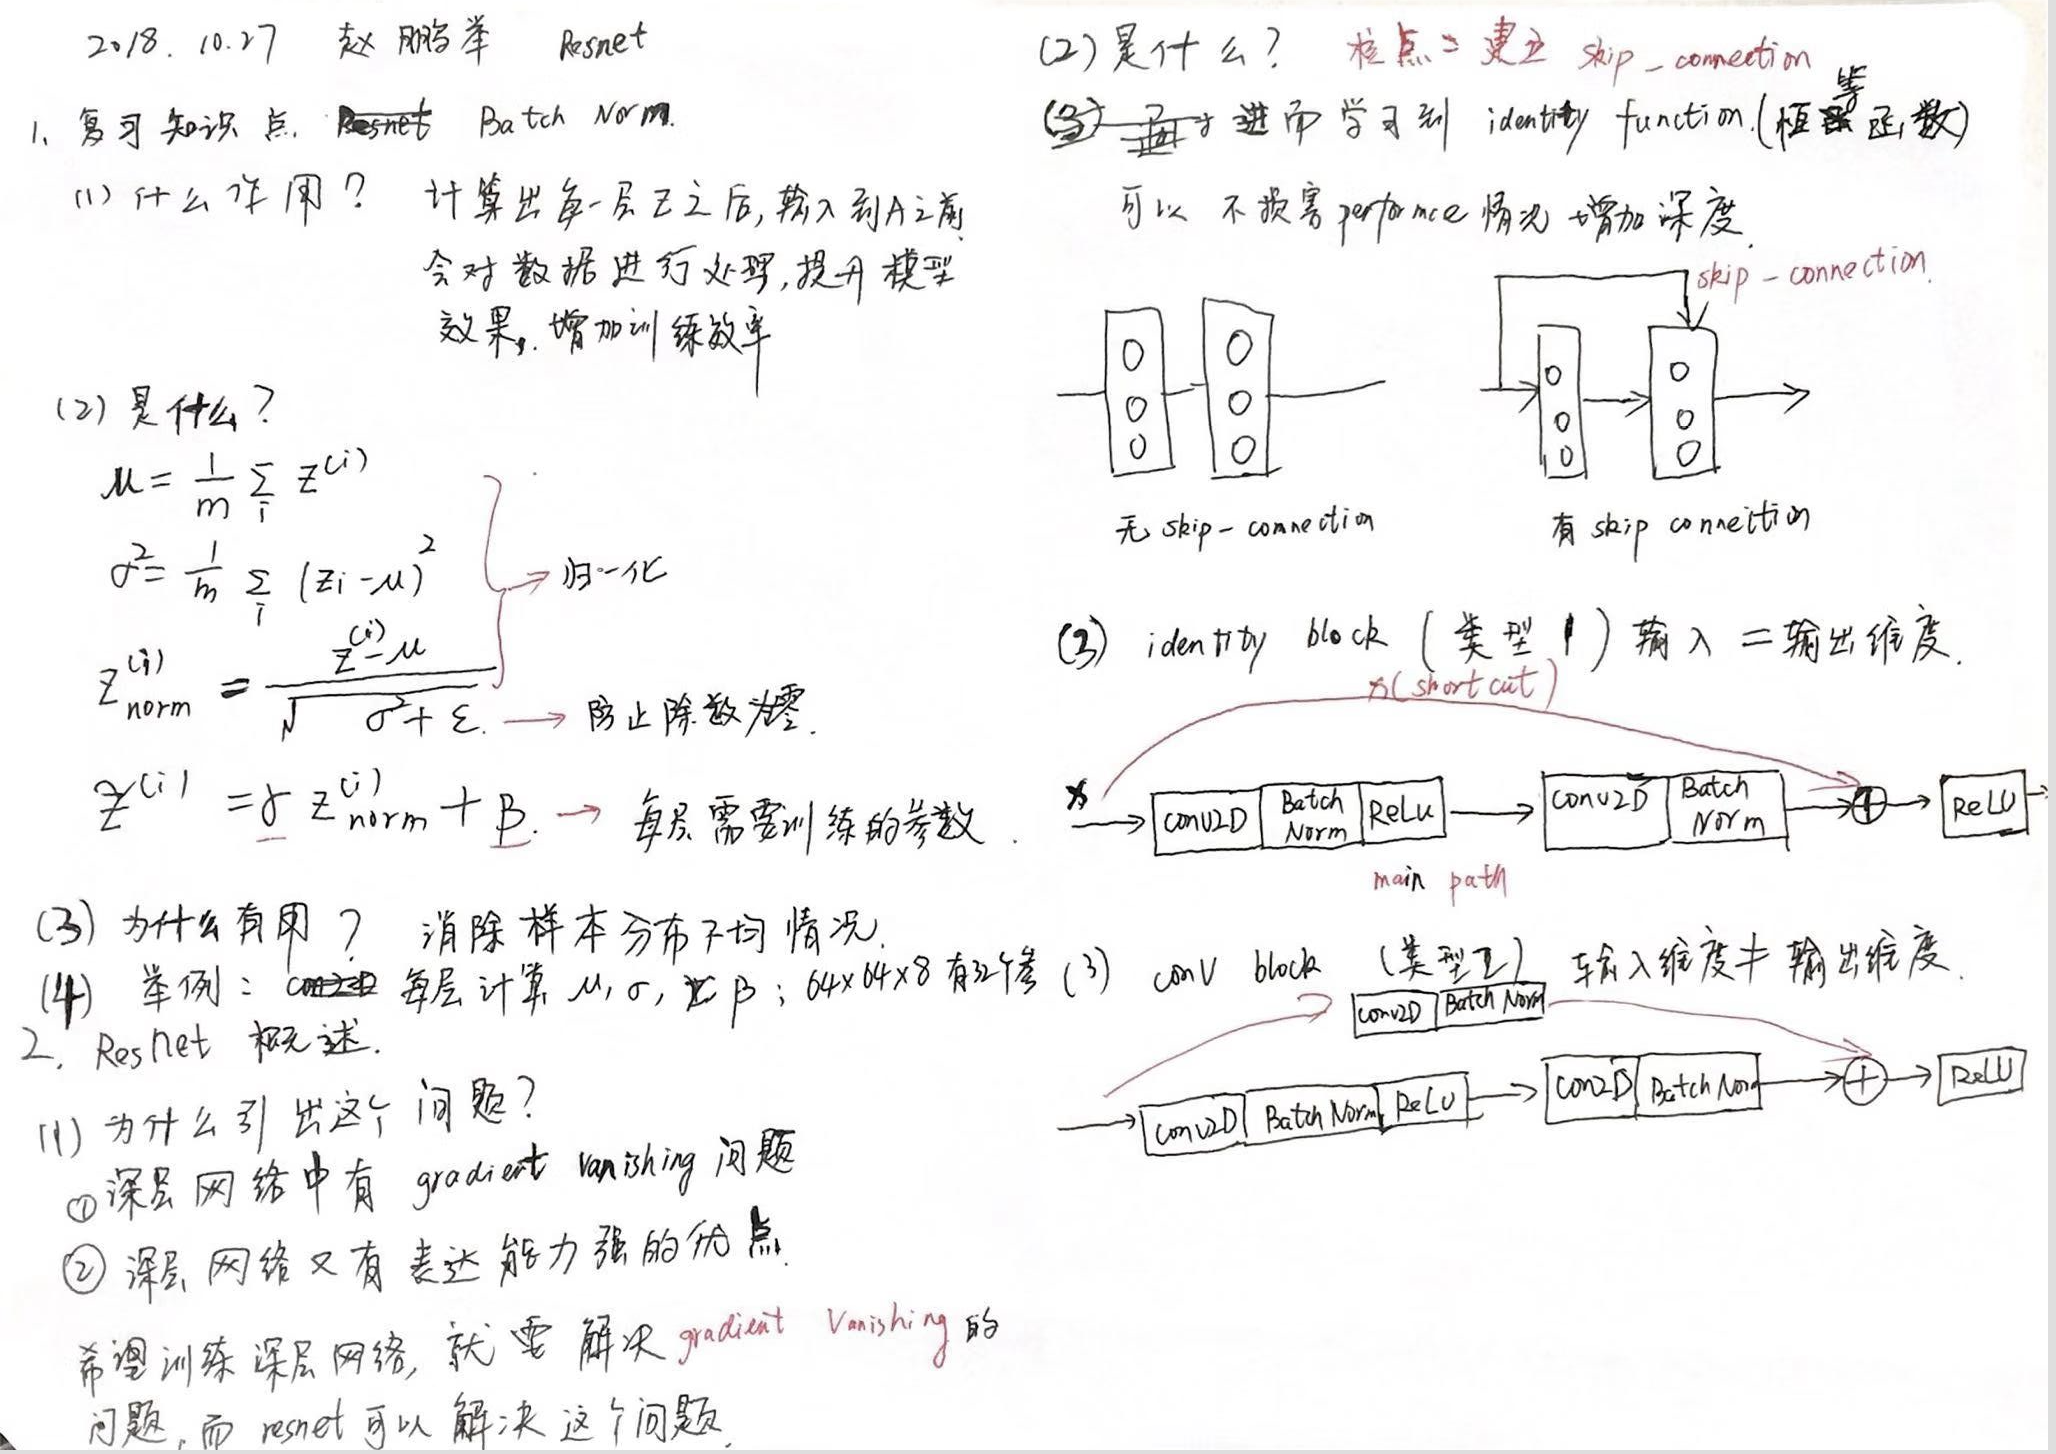 2018.10.27 赵鹏举 Resnet
1、复习知识点 Resnet Batch Norm.
(1) 什么作用? 计算出每一层Z之后,输入到A之前
会对数据进行处理,提升模型
效果,增加训练效率
(2) 是什么?
μ = 1/m Σi Z(i)
σ² = 1/m Σi (Zi-μ)²
Z(i)norm = Z(i)-μ / √σ²+ε. → 防止除数为零.
→ 归一化
Z̃(i) = γ Z(i)norm + β. → 每层需要训练的参数.
(3) 为什么有用? 消除样本分布不均情况.
(4) 举例: 每层计算 μ, σ, β; 64×64×8 有32个参
2. ResNet 概述.
(1) 为什么引出这个问题?
① 深层网络中有 gradient vanishing 问题
② 深层网络又有表达能力强的优点.
希望训练深层网络,就要解决 gradient Vanishing 的
问题,而 resnet 可以解决这个问题.
(2) 是什么? 建立 skip-connection
进而学习到 identity function.(恒等函数)
可以不损害performce情况增加深度.
skip-connection.
无 skip-connection
有 skip connection
(3) identity block (类型1) 输入=输出维度.
x(shortcut)
x conv2D Batch Norm ReLu conv2D Batch Norm + ReLU
main path
(3) conv block (类型2) 输入维度≠输出维度.
conv2D Batch Norm
conv2D Batch Norm ReLU con2D Batch Norm + ReLU